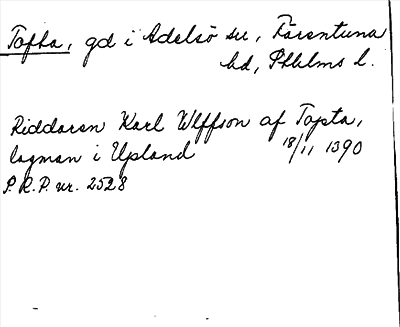 Tofta, gd i Adelsö sn, Färentuna
hd, Sthlms l.
Riddaren Karl Ulffson af Topta,
lagman i Upland 18/11 1390
P.R.P. nr. 2528